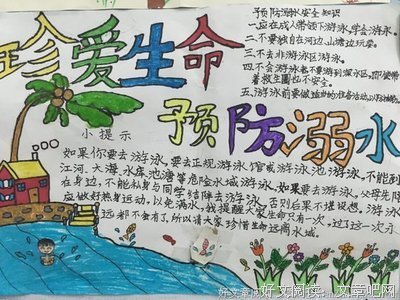 珍爱生命
预防溺水安全知识
一.应在成人带领下游泳,学会游泳。
二.不要独自在河边、山塘边玩耍。
三.不去非游泳区游泳。
四.不会游泳者,不要游到深水区,即使带
着救生圈也不安全。
五.游泳前要做适当的准备活动,以防抽筋。
预防溺水
小提示
如果你要去游泳,要去正规游泳馆或游泳池游泳,不能到
江河、大海、水库、池塘等危险水域游泳,如果要去游泳,父母先陪
在身边,不能私自与同学结伴去游泳,否则后果不堪设想。游泳
应做好热身运动,以免溺水,我提醒大家生命只有一次,过了这一次,永
远都不会有了,所以请大家珍惜生命远离水域。
好文阅读:文章吧网